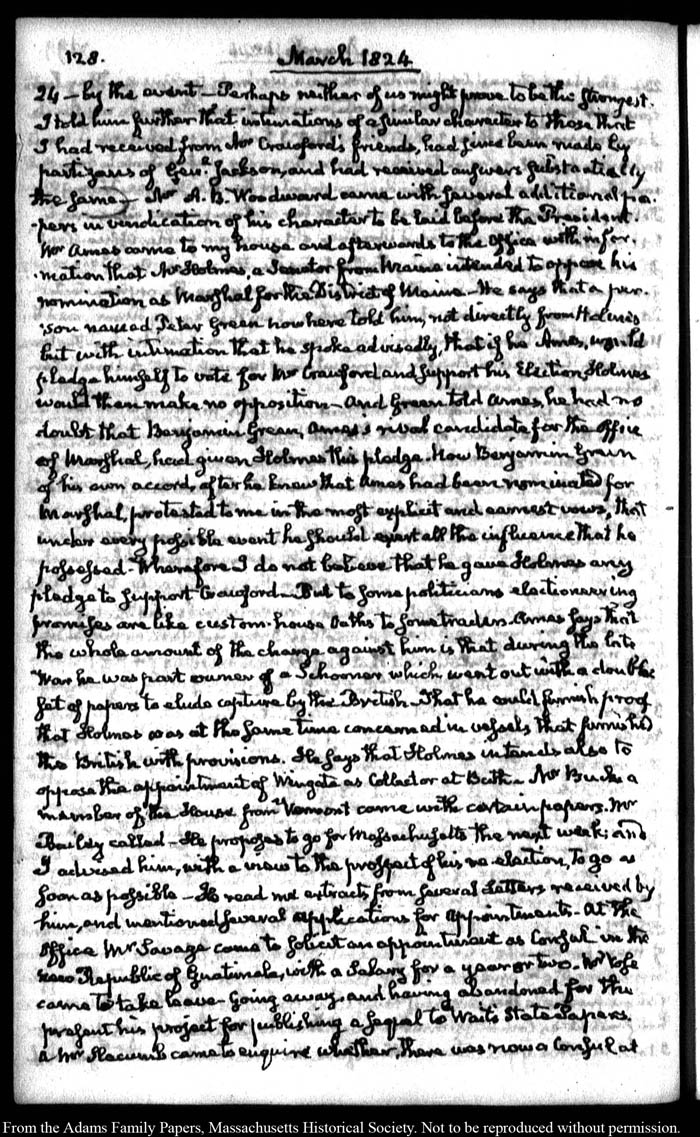 128. March 1824
24 — by the event — Perhaps neither of us might prove to be the strongest.
I told him further that intimations of a similar character to those that
I had received from Mr Crawford's friends, had since been made by
partizans of Genl. Jackson, and had received answers substantially
the same — Mr A. B. Woodward came with several additional pa-
pers in vindication of his character to be laid before the President.
Mr Ames came to my house and afterwards to the Office with infor-
mation that Mr Holmes, a Senator from Maine intended to oppose his
nomination as Marshal for the District of Maine — He says that a per-
son named Peter Green now here told him, not directly from Holmes
but with intimation that he spoke advisedly, that if he Ames, would
pledge himself to vote for Mr Crawford and support his Election, Holmes
would then make no opposition — And Green told Ames, he had no
doubt that Benjamin Green, Ames's rival candidate for the Office
of Marshal, had given Holmes this pledge. Now Benjamin Green
of his own accord, after he knew that Ames had been nominated for
Marshal, protested to me in the most explicit and earnest vows, that
under every possible event he should exert all the influence that he
possessed. Wherefore I do not believe that he gave Holmes any
pledge to support Crawford — But to some politicians electioneering
promises are like custom-house Oaths to some traders. Ames says that
the whole amount of the charge against him is that during the late
War he was part owner of a Schooner which went out with a double
set of papers to elude capture by the British — That he could furnish proof
that Holmes was at the same time concerned in vessels that furnished
the British with provisions. He says that Holmes intends also to
oppose the appointment of Wingate as Collector at Bath — Mr Buck a
member of the House from Vermont came with certain papers. Mr
Bailey called — He proposes to go for Massachusetts the next week; and
I advised him, with a view to the prospect of his re-election, to go as
soon as possible — He read me extracts from several Letters received by
him, and mentioned several applications for appointments — At the
Office Mr Savage came to solicit an appointment as Consul in the
new Republic of Guatimala, with a Salary for a year or two. Mr
came to take leave — Going away, and having abandoned for the
present his project for publishing a sequel to Wait's State Papers.
A Mr Slacumb came to enquire whether, there was now a Consul at
From the Adams Family Papers, Massachusetts Historical Society. Not to be reproduced without permission.